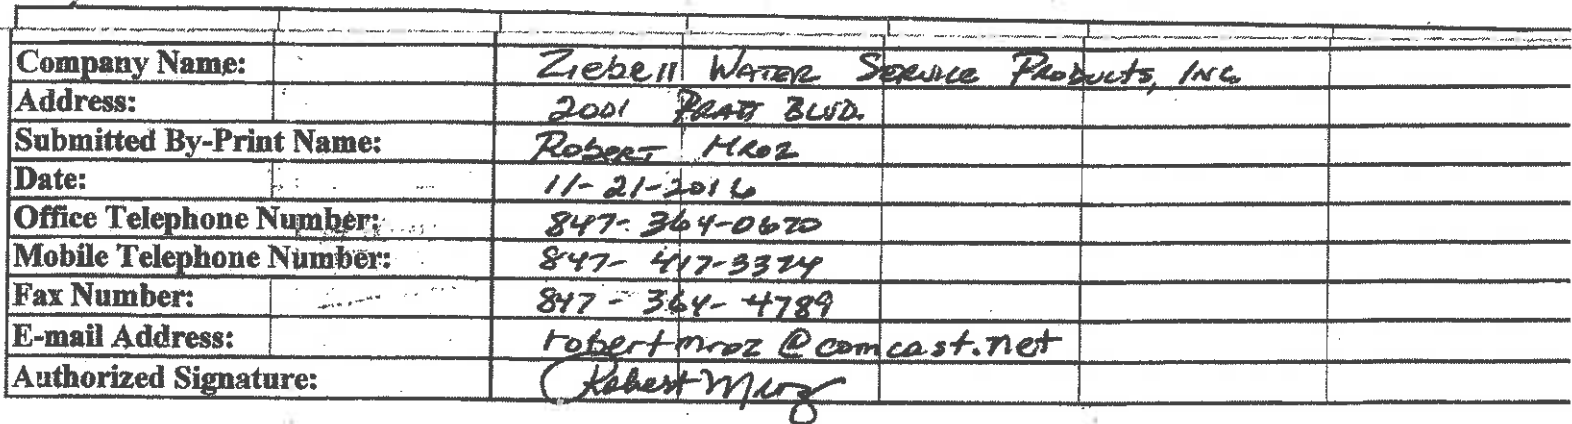 Company Name: Ziebell Water Service Products, Inc
Address: 2001 Pratt Blvd.
Submitted By-Print Name: Robert Mroz
Date: 11-21-2016
Office Telephone Number: 847-364-0670
Mobile Telephone Number: 847-417-3374
Fax Number: 847-364-4789
E-mail Address: robertmroz@comcast.net
Authorized Signature: Robert Mroz